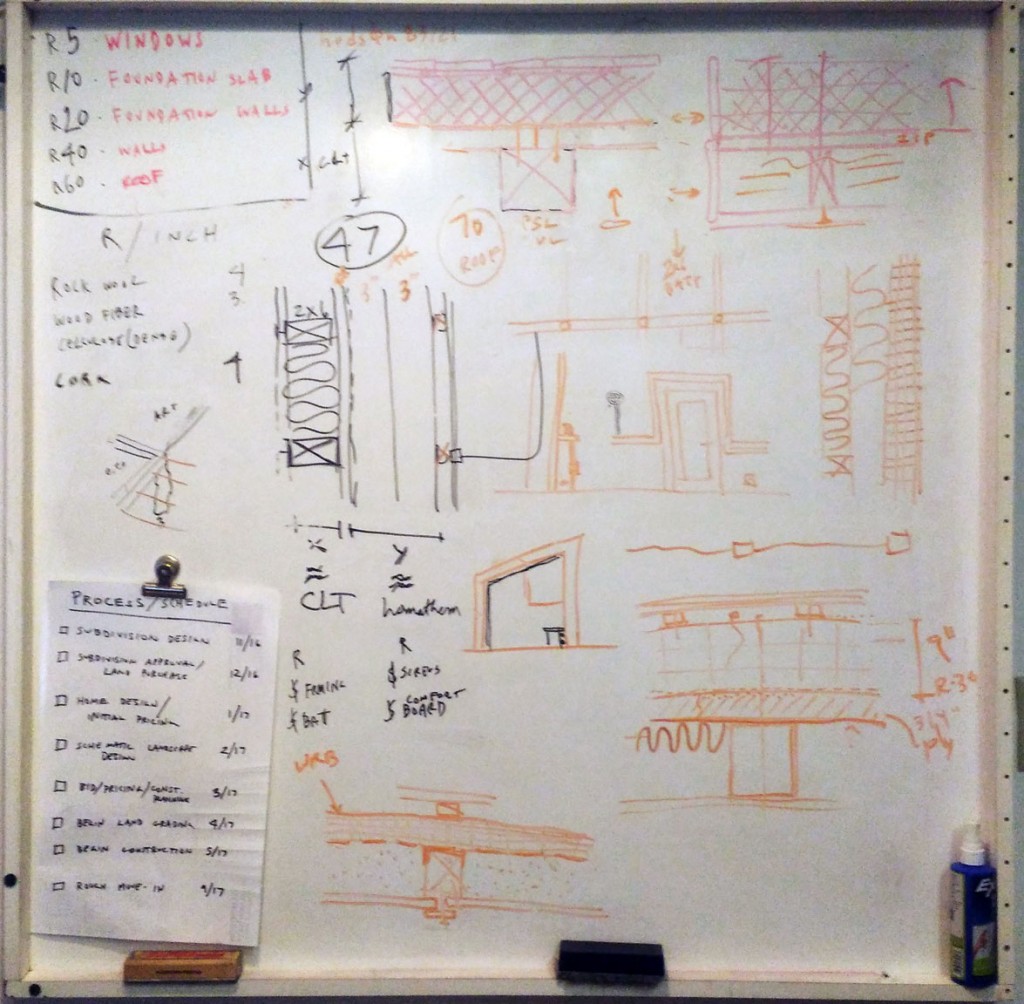 R5 - WINDOWS
R10 - FOUNDATION SLAB
R20 - FOUNDATION WALLS
R40 - WALLS
R60 - ROOF
CLT
ZIP
R / INCH
ROCK WOOL 4
WOOD FIBER 3.
CELLULOSE (DENSE)
CORK 4
47
70
ROOF
3" 3"
2X6
ART
X
≈
CLT
R
$ FRMING
$ BAT
Y
≈
homatherm
R
$ SCREWS
$ COMFORT
BOARD
9"
3/4"
ply
WRB
PROCESS/SCHEDULE
SUBDIVISION DESIGN 11/16
SUBDIVISION APPROVAL/
LAND PURCHASE 12/16
HOME DESIGN/
INITIAL PRICING 1/17
SCHEMATIC LANDSCAPE
DESIGN 2/17
BID/PRICING/CONST. 3/17
BEGIN LAND GRADING 4/17
BEGIN CONSTRUCTION 5/17
ROUGH MOVE-IN 9/17